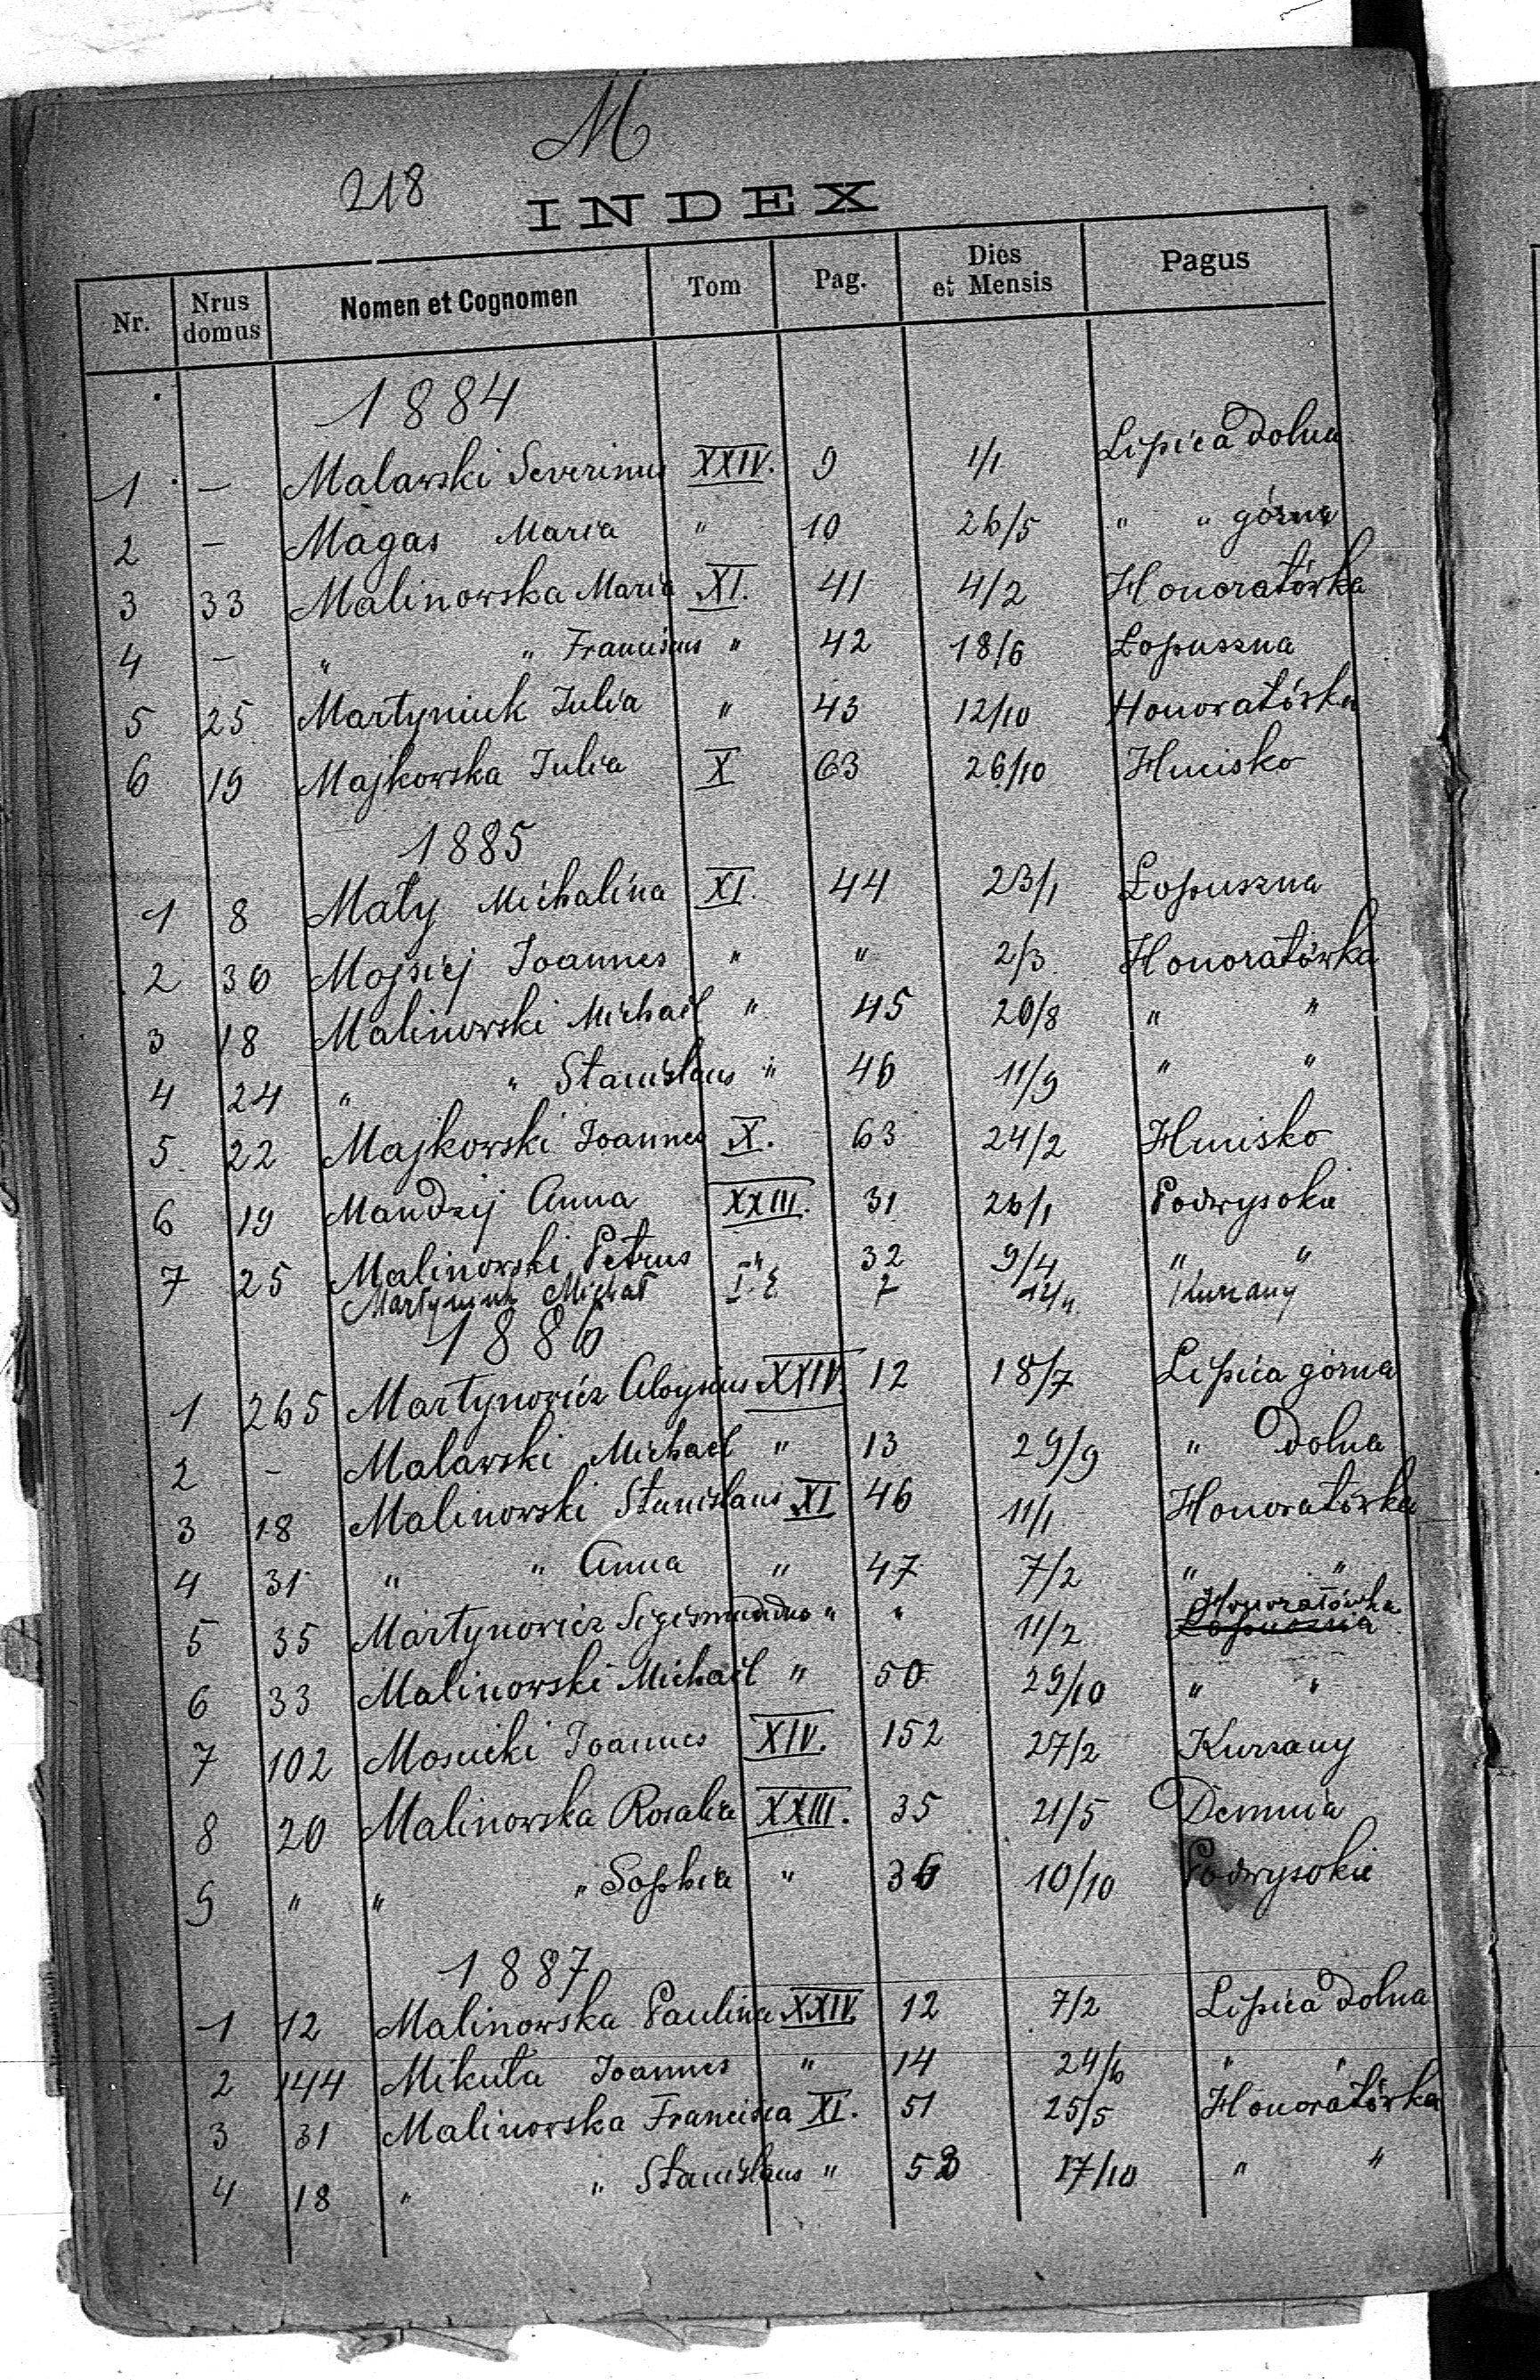 M
218
INDEX
Nr. Nrus domus Nomen et Cognomen Tom Pag. Dies et Mensis Pagus
1884
1 — Malawski Severinus XXIV. 9 1/1 Lipica dolna
2 — Magas Maria " 10 26/5 " " górna
3 33 Malinowska Maria XI. 41 4/2 Honoratówka
4 — " " Franciscus " 42 18/6 Łopuszna
5 25 Martyniuk Julia " 43 12/10 Honoratówka
6 19 Majkowska Julia X 63 26/10 Hucisko
1885
1 8 Mały Michalina XI. 44 23/1 Łopuszna
2 30 Mojsiej Joannes " " 2/3 Honoratówka
3 18 Malinowski Michaël " 45 20/8 " "
4 24 " " Stanislaus " 46 11/9 " "
5 22 Majkowski Joannes X. 63 24/2 Hucisko
6 19 Mandzij Anna XXIII. 31 26/1 Podwysokie
7 25 Malinowski Petrus " 32 9/4 " "
Martyniuk Michał I. 7 Kurzany
1886
1 265 Martynowicz Aloysius XXIV. 12 18/7 Lipica górna
2 - Malawski Michaël " 13 29/9 " dolna
3 18 Malinowski Stanislaus XI 46 11/1 Honoratówka
4 31 " " Anna " 47 7/2 " "
5 35 Martynowicz Sigismundus " " 11/2 Honoratówka Łopuszna
6 33 Malinowski Michaël " 50 29/10 " "
7 102 Mosucki Joannes XIV. 152 27/2 Kurzany
8 20 Malinowska Rosalia XXIII. 35 21/5 Demnia
9 " " " Sophia " 36 10/10 Podwysokie
1887
1 12 Malinowska Paulina XXIV. 12 7/2 Lipica dolna
2 144 Mikuła Joannes " 14 24/6 " "
3 31 Malinowska Francisca XI. 51 25/5 Honoratówka
4 18 " " Stanislaus " 17/10 " "